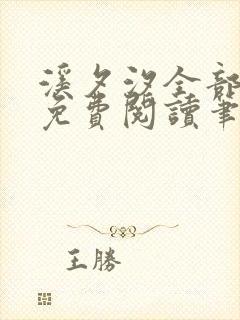 溪夕汐全部
免費閱讀筆
王勝